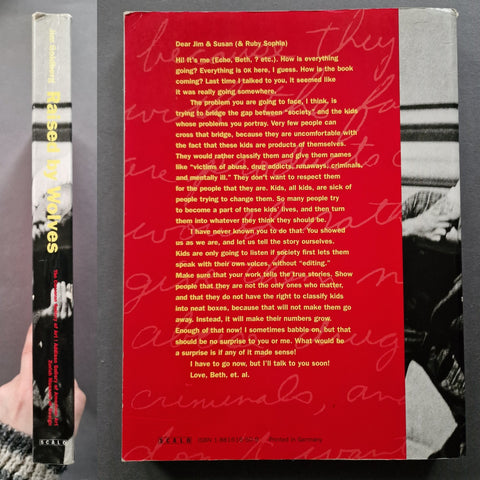 Jim Goldberg
Raised by Wolves
SCALO
because they
Dear Jim & Susan (& Ruby Sophia)
Hi! It's me (Echo, Beth, ? etc.). How is everything
going? Everything is OK here, I guess. How is the book
coming? Last time I talked to you, it seemed like
it was really going somewhere.
The problem you are going to face, I think, is
trying to bridge the gap between "society" and the kids
whose problems you portray. Very few people can
cross that bridge, because they are uncomfortable with
the fact that these kids are products of themselves.
They would rather classify them and give them names
like "victims of abuse, drug addicts, runaways, criminals,
and mentally ill." They don't want to respect them
for the people that they are. Kids, all kids, are sick of
people trying to change them. So many people try
to become a part of these kids' lives, and then turn
them into whatever they think they should be.
I have never known you to do that. You showed
us as we are, and let us tell the story ourselves.
Kids are only going to listen if society first lets them
speak with their own voices, without "editing."
Make sure that your work tells the true stories. Show
people that they are not the only ones who matter,
and that they do not have the right to classify kids
into neat boxes, because that will not make them go
away. Instead, it will make their numbers grow.
Enough of that now! I sometimes babble on, but that
should be no surprise to you or me. What would be
a surprise is if any of it made sense!
I have to go now, but I'll talk to you soon!
Love, Beth, et. al.
criminals, and
SCALO
Printed in Germany
don't want